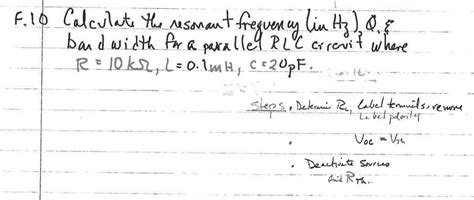 F.10 Calculate the resonant frequency (in Hz), Q, &
bandwidth for a parallel RLC circuit where
R = 10 kΩ, L = 0.1 mH, C = 20 pF.
Steps • Determine RL, Label terminals, remove
Label polarity
• Voc = Vth
• Deactivate Sources
find RTh.